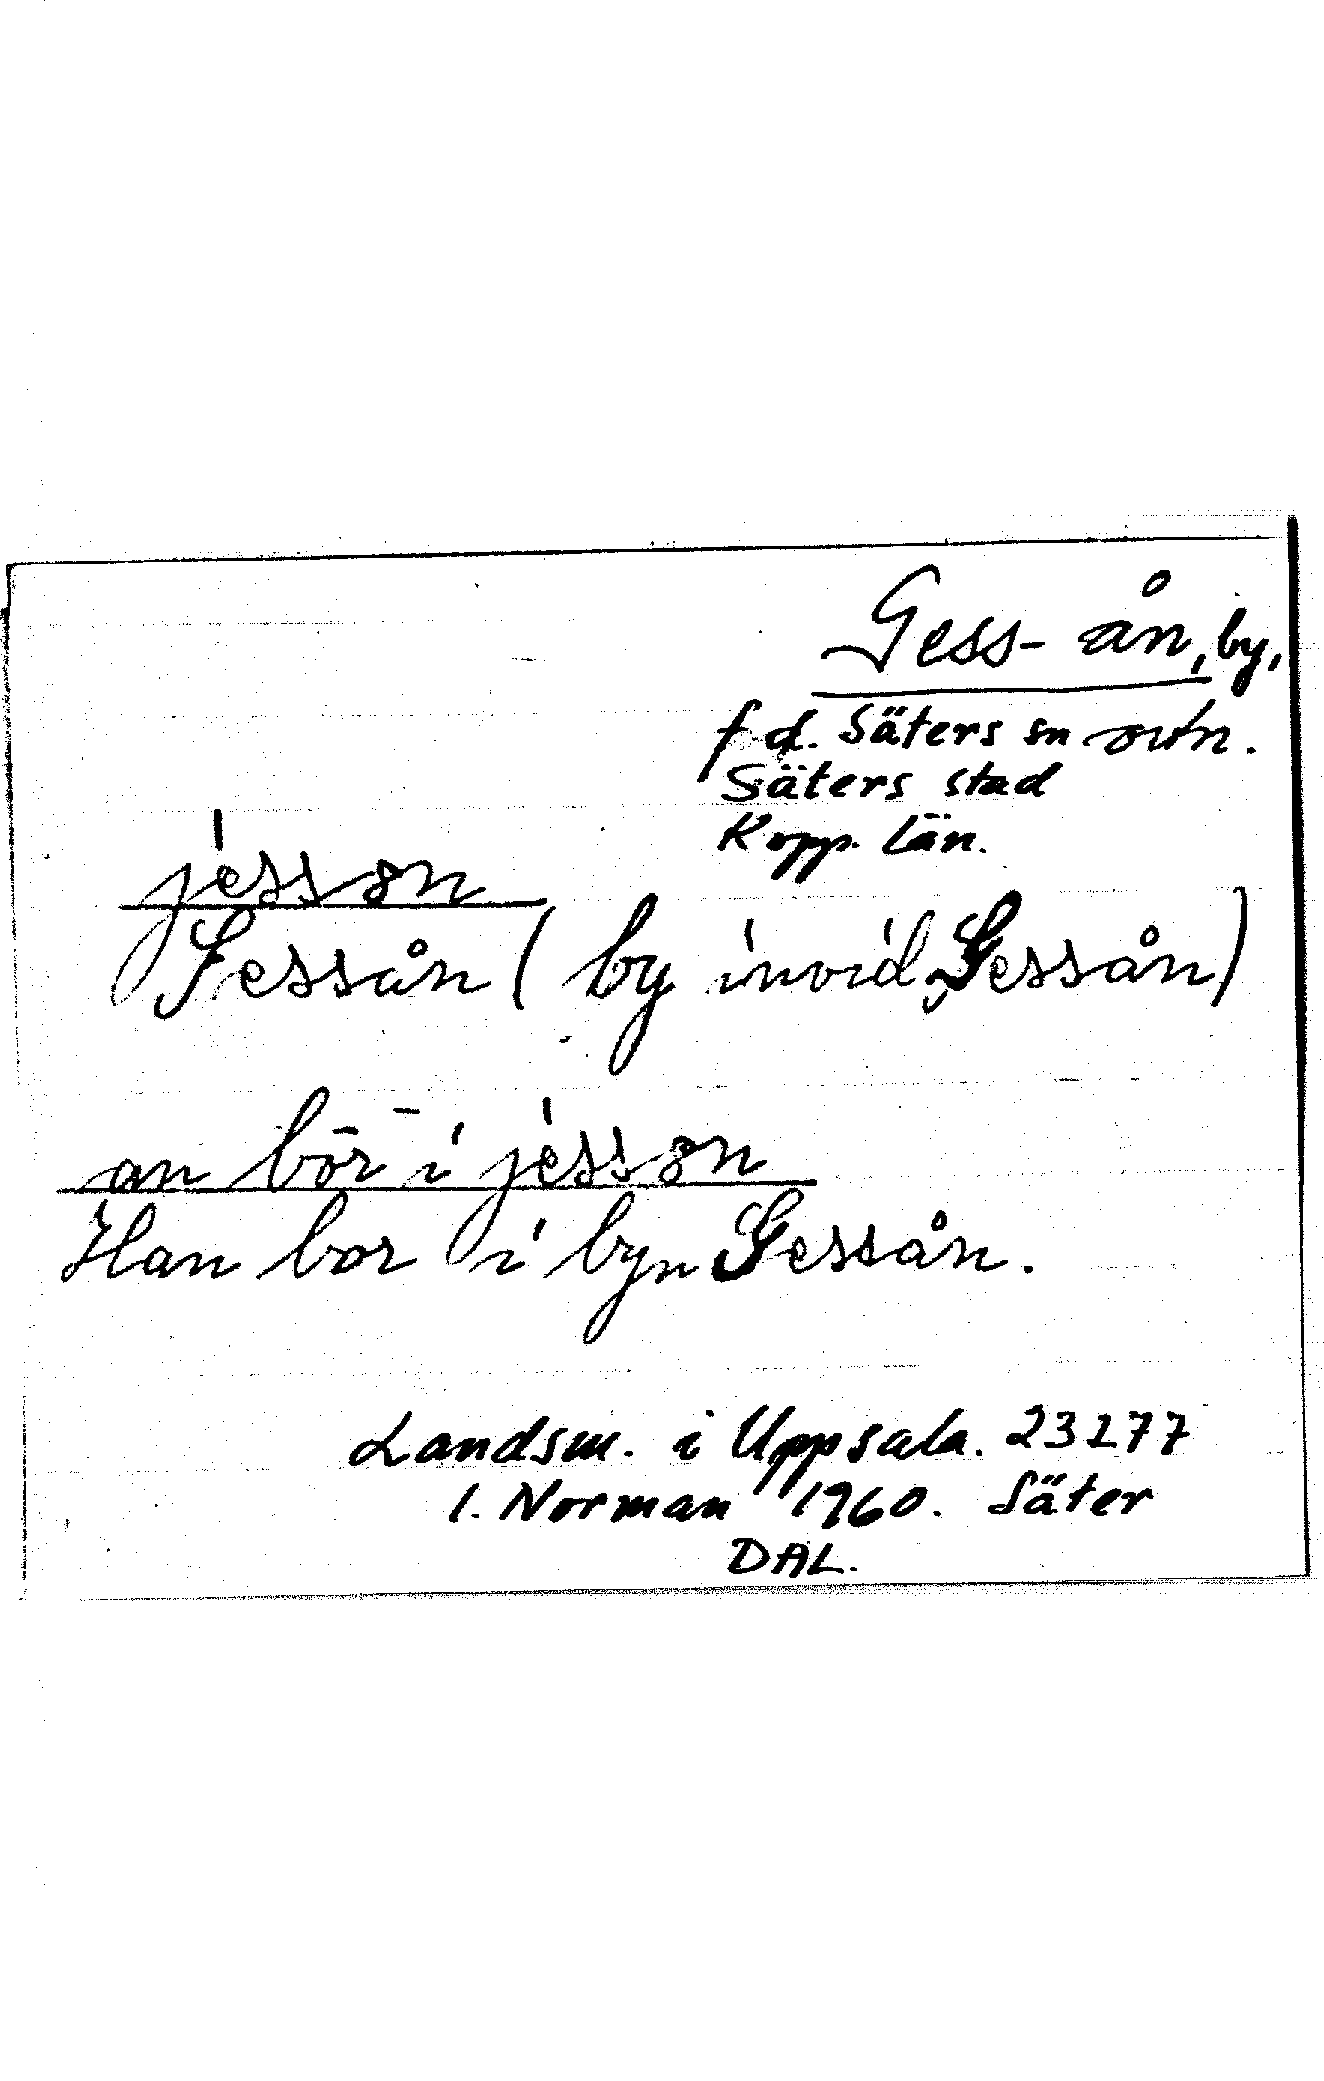 Gess-ån, by,
f d. Säters sn ortn.
Säters stad
Kopp. län.
jesson
Gessån (by invid Gessån)
an bōr i jesson
Han bor i byn Gessån.
Landsm. i Uppsala. 23177
I. Norman 1960. Säter
DAL.